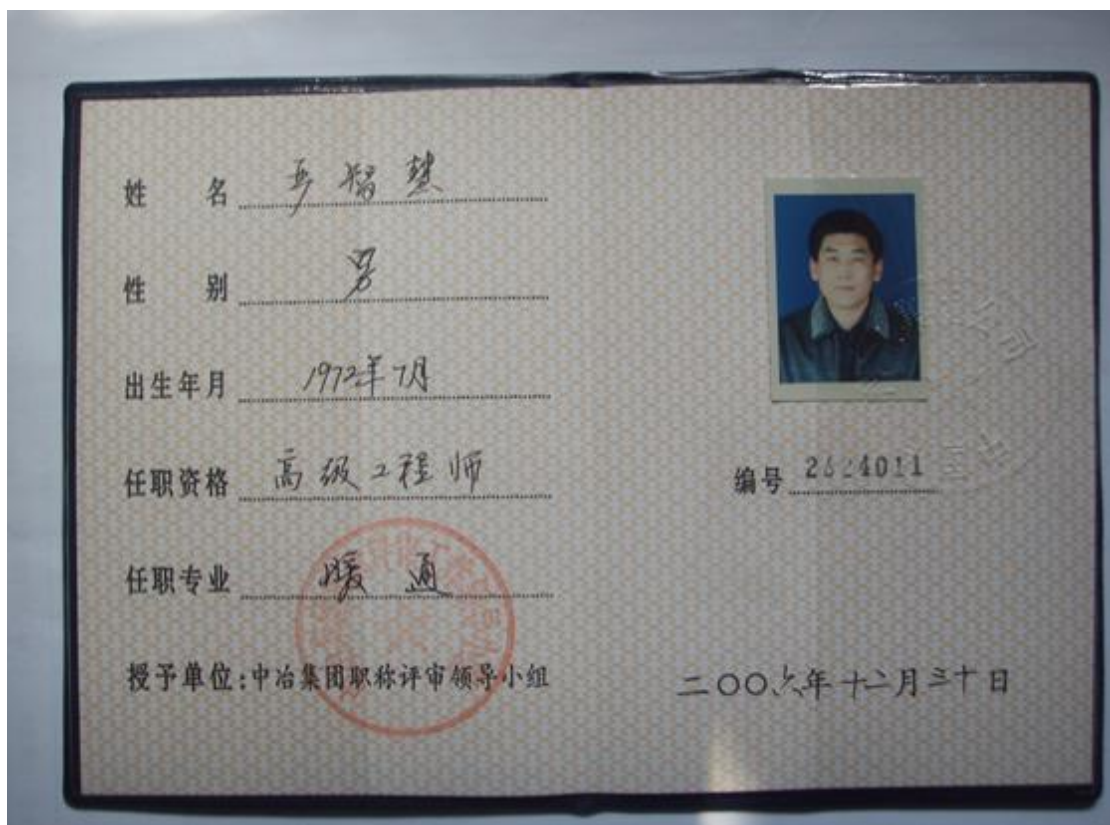 姓 名 智慧
性 别 男
出生年月 1972年7月
任职资格 高级工程师
任职专业 暖通
授予单位:中冶集团职称评审领导小组
编号
二〇〇六年十二月三十日